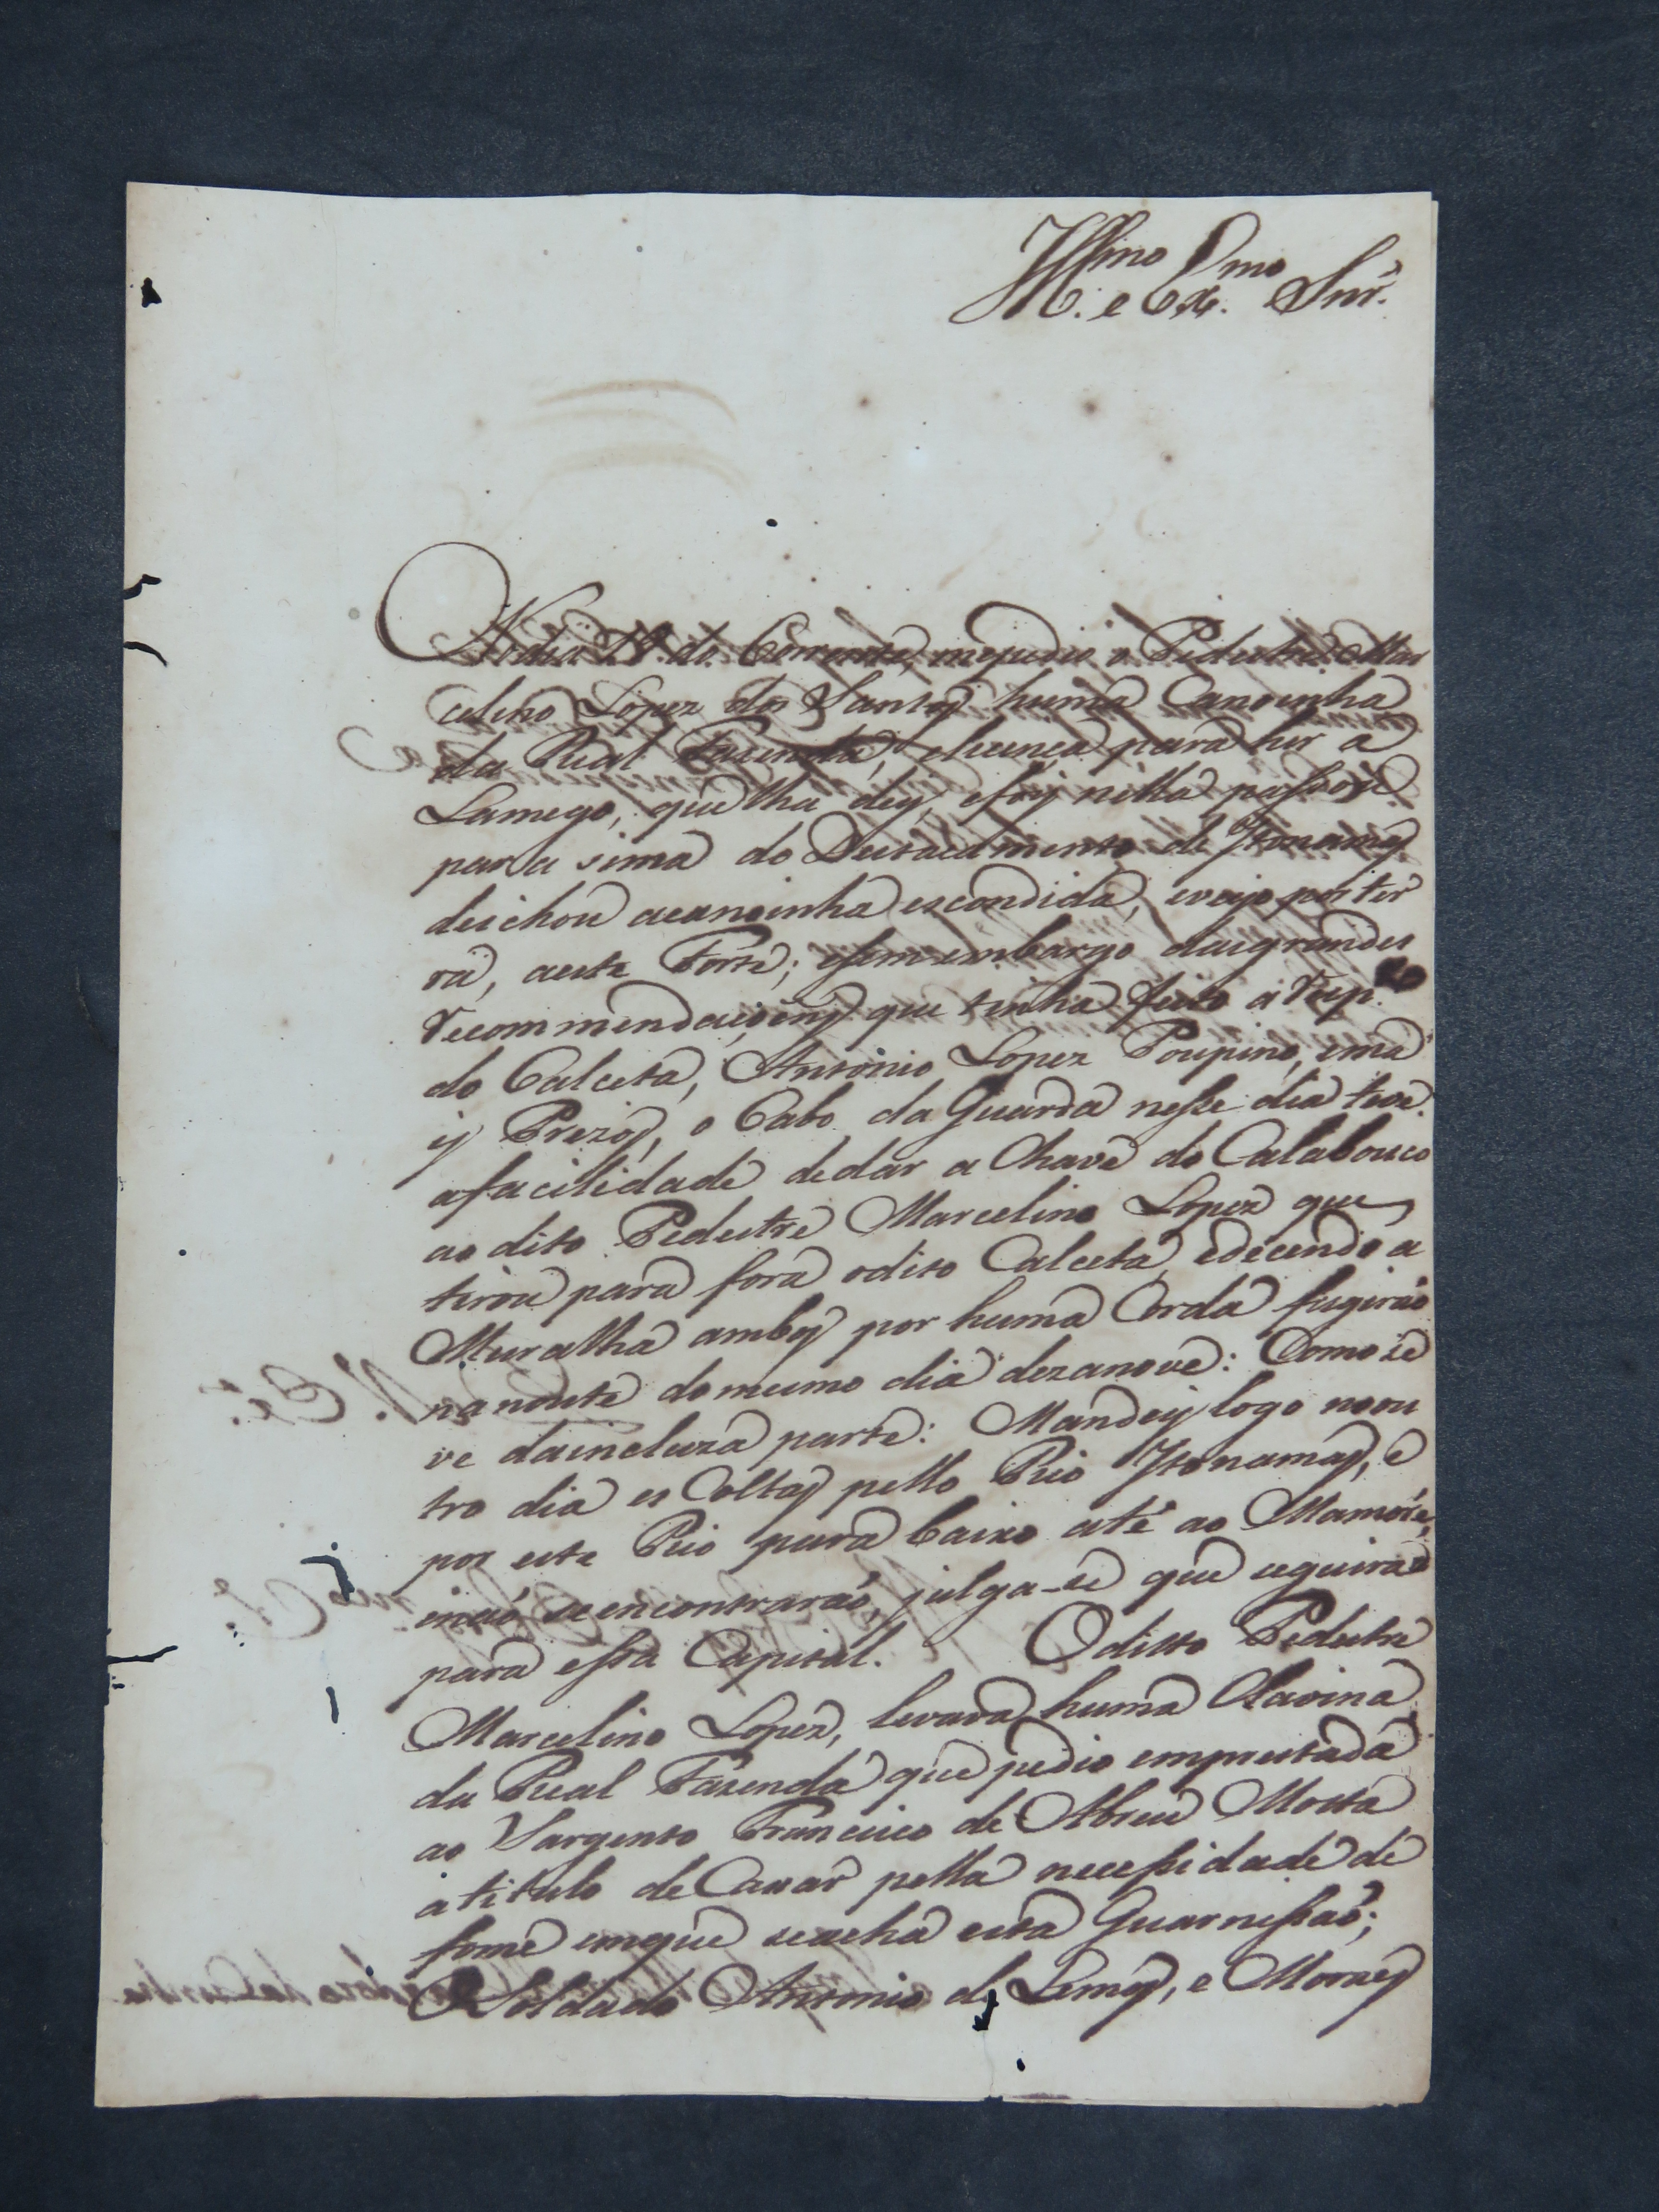 Ill.mo e Ex.mo Snr.
No dia 19. do Corrente, mepedio o Pedestre Mar
celino Lopez dos Santos huma Canoinha
da Real Fazenda, elicença para hir a
Lamego, que lha dey, efoy nella passou
para sima do Destacamento de Itonamas
deichou acanoinha escondida, eveyo por ter
ra, aeste Forte; esem embargo dasgrandes
recommendaçoens que tinha feito a resp.to
do Calceta, Antonio Lopez Poupino, ema
is Prezos, o Cabo da Guarda nesse dia teve
afacilidade dedar a Chave do Calabouco
ao dito Pedestre Marcelino Lopez que
tirou para fora odito Calceta, edecendo a
Muralha ambos por huma Corda fugiraõ
nanoute domesmo dia dezanove: Como se
ve daincluza parte: Mandey logo noou
tro dia es Coltas pello Rio Itonamas, e
por este Rio para baixo até ao Mamoré,
enaõ seencontraraõ, julga-se que seguiraõ
para essa Capital. Oditto Pedestre
Marcelino Lopez, levava huma Clavina
da Real Fazenda que pedio emprestada
ao Sargento Francisco de Abreu Motta
atitulo de Cassar pella necessidade de
fome emque seacha esta Guarnissaõ;
OSoldado Antonio de Lemos, e Moraes